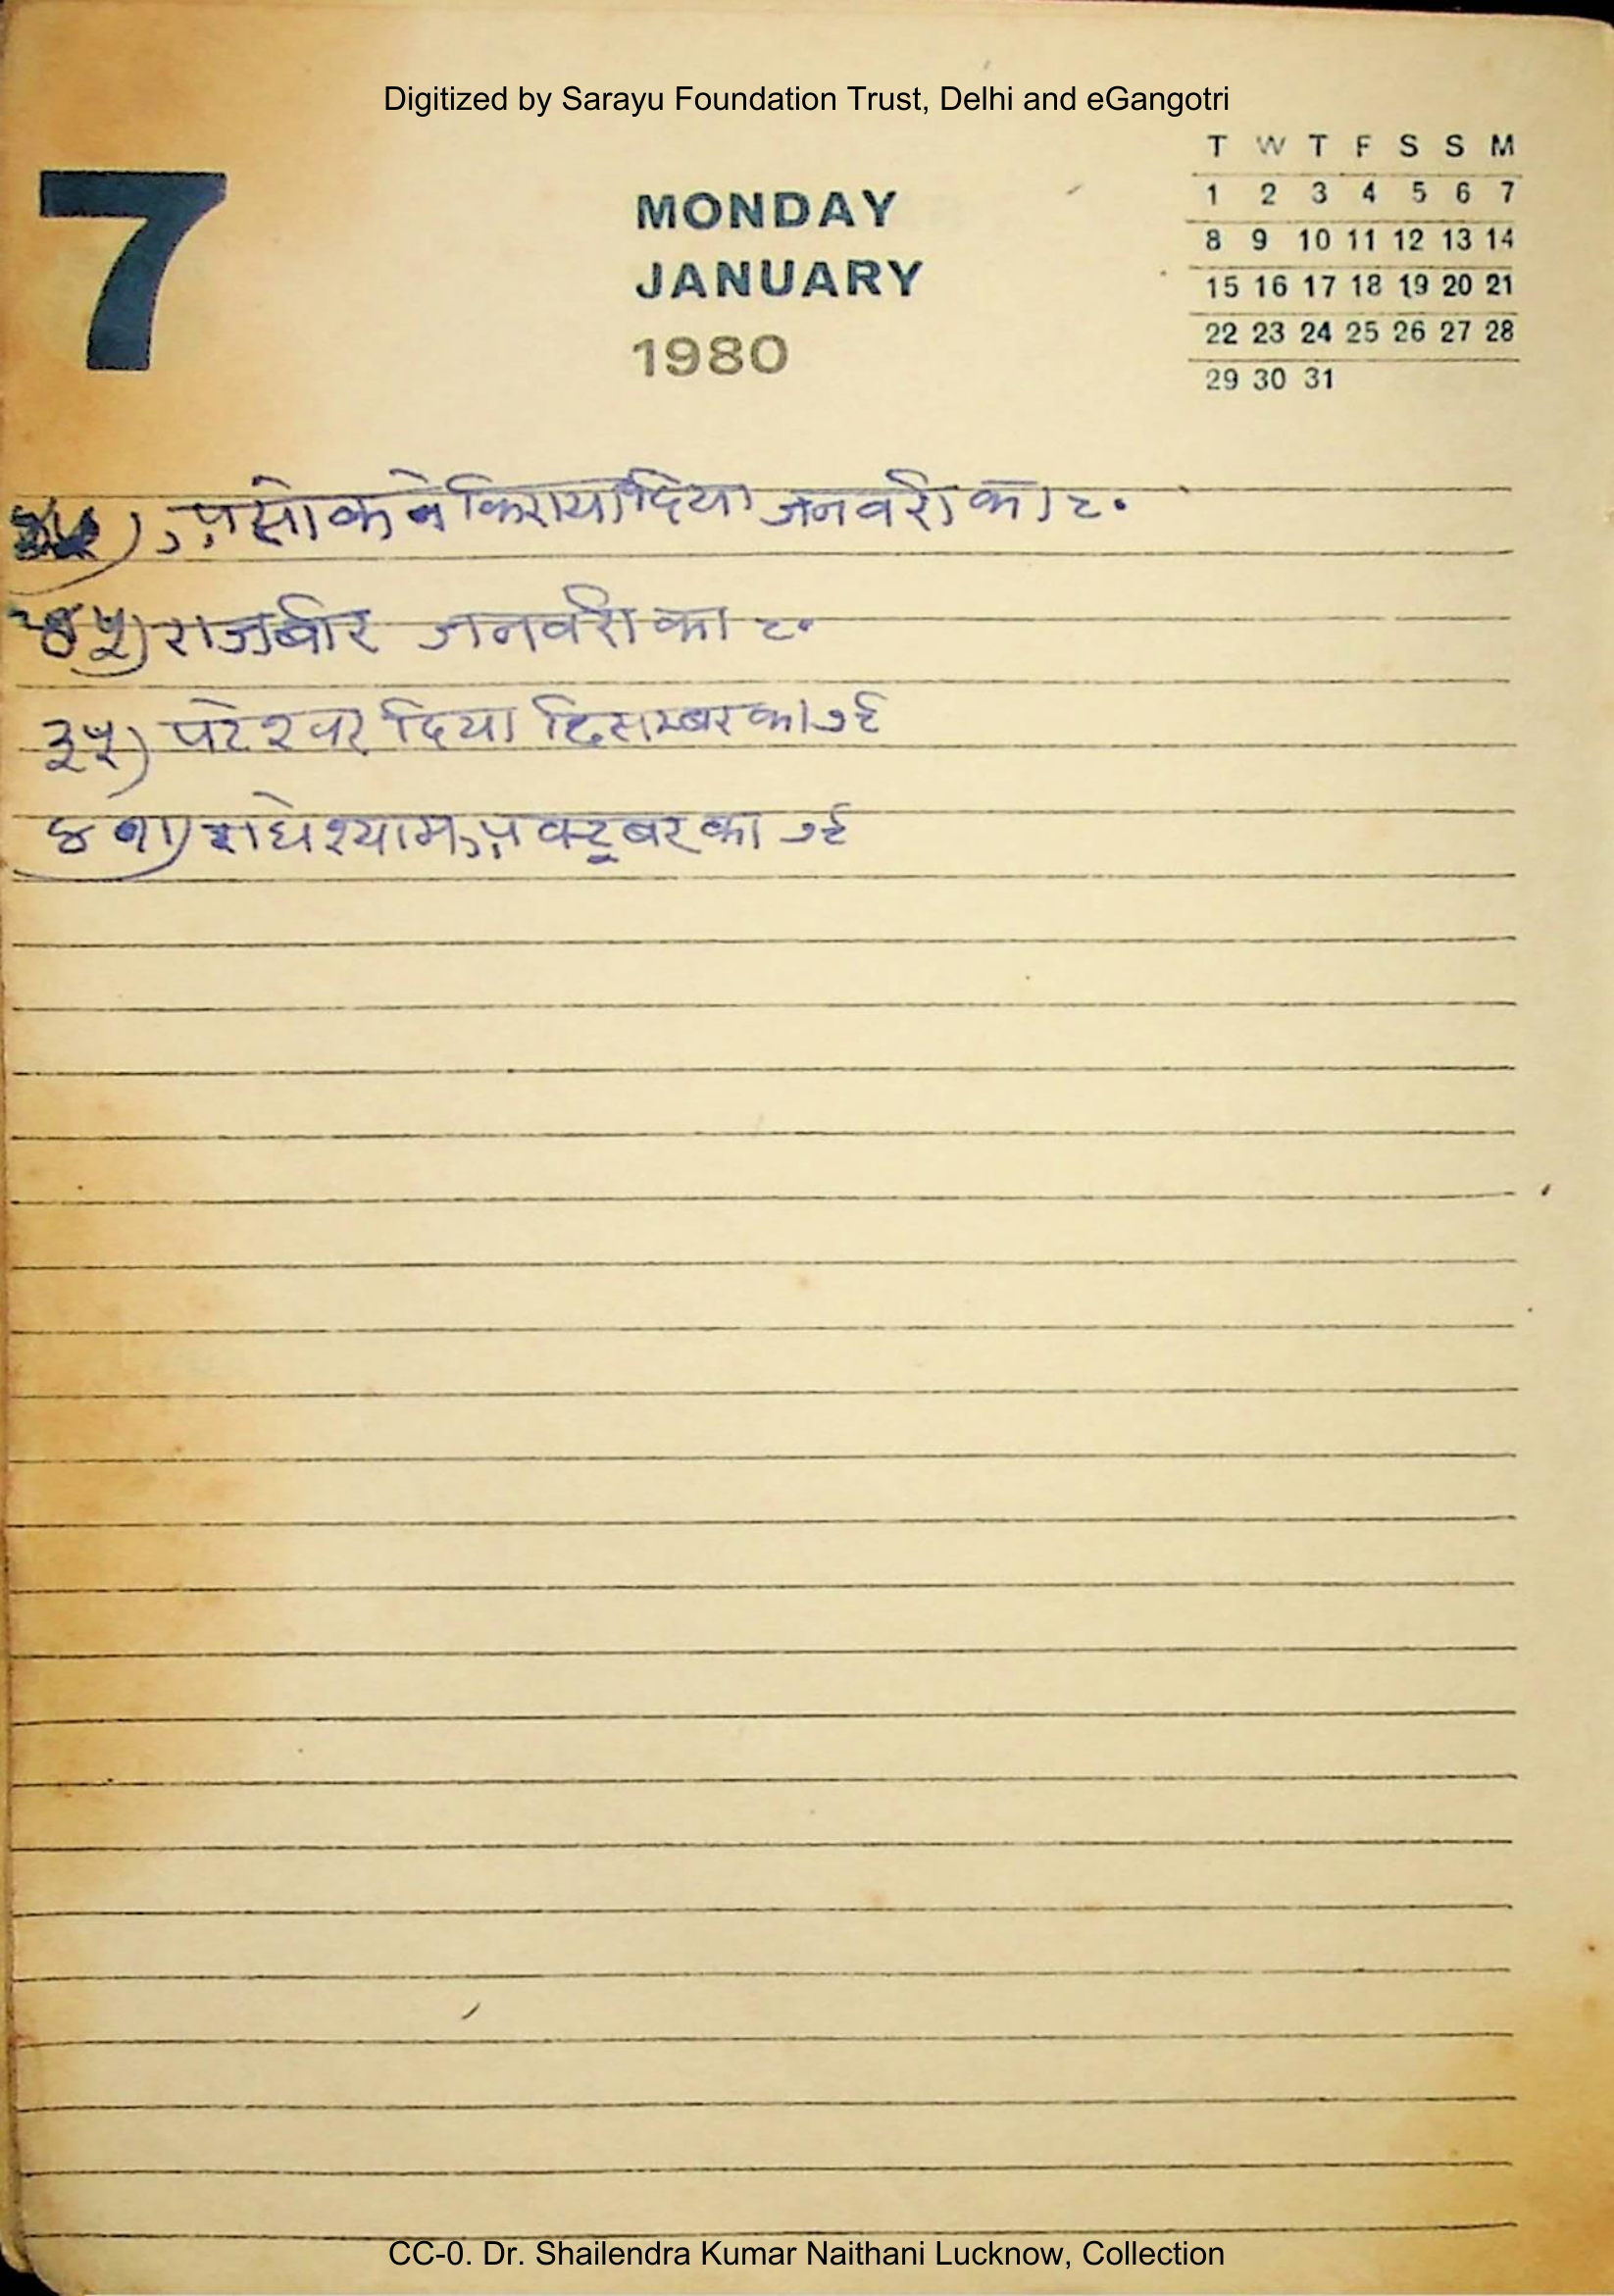 Digitized by Sarayu Foundation Trust, Delhi and eGangotri
T W T F S S M
1 2 3 4 5 6 7
8 9 10 11 12 13 14
15 16 17 18 19 20 21
22 23 24 25 26 27 28
29 30 31
7
MONDAY
JANUARY
1980
) असोक ने किराया दिया जनवरी का ८०
४५) राजबीर जनवरी का ८०
३५) दिया दिसम्बर का ७९
राधेश्याम अक्टूबर का ७९
CC-0. Dr. Shailendra Kumar Naithani Lucknow, Collection